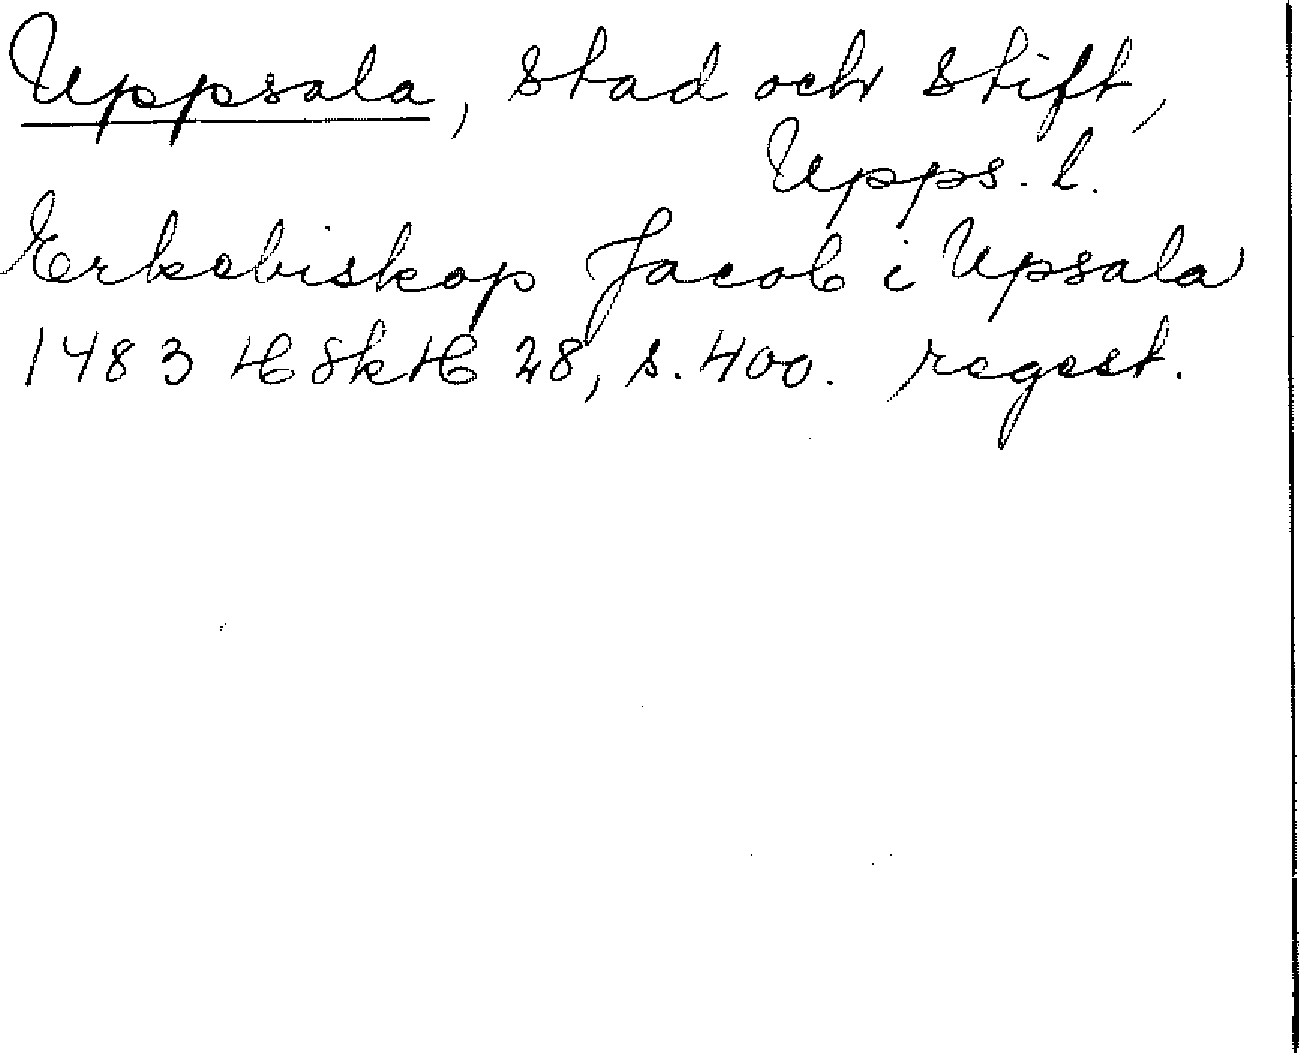 Uppsala, stad och stift,
Upps. l.
Erkebiskop Jacob i Upsala
1483 HSkH 28, s. 400. regest.